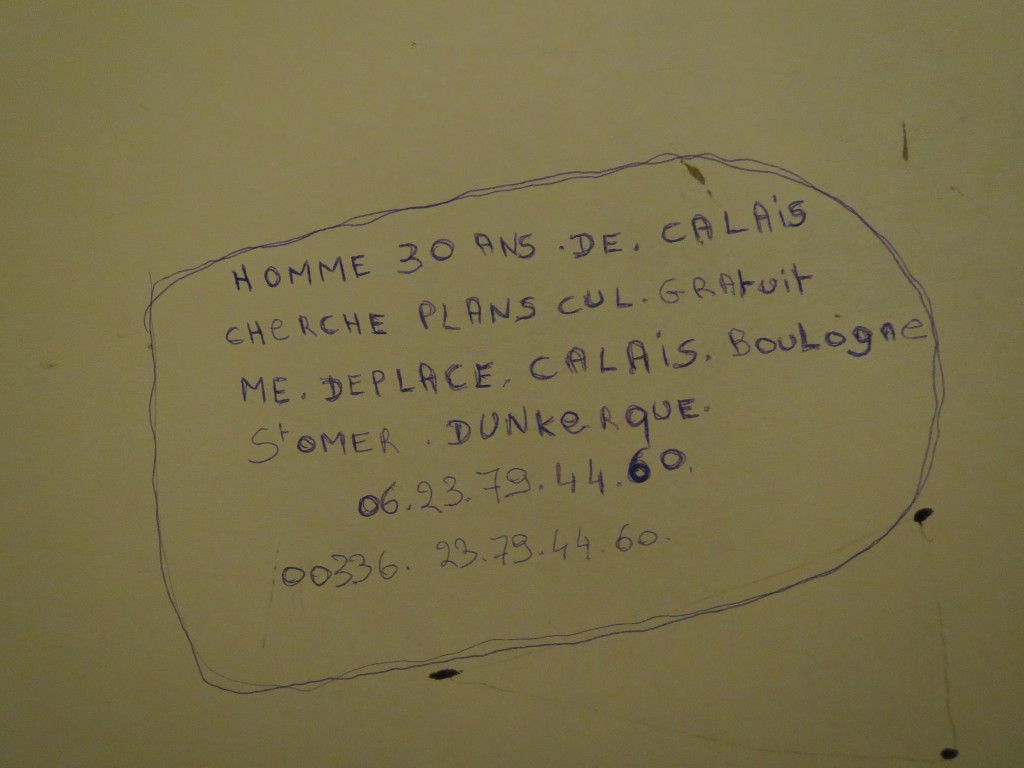 HOMME 30 ANS . DE. CALAiS
CHeRCHE PLANS CUL. GRAtuit
ME. DEPLACE. CALAiS. BOULogne
St OMER . DUNKeRquE.
06.23.79.44.60.
00336. 23.79.44.60.